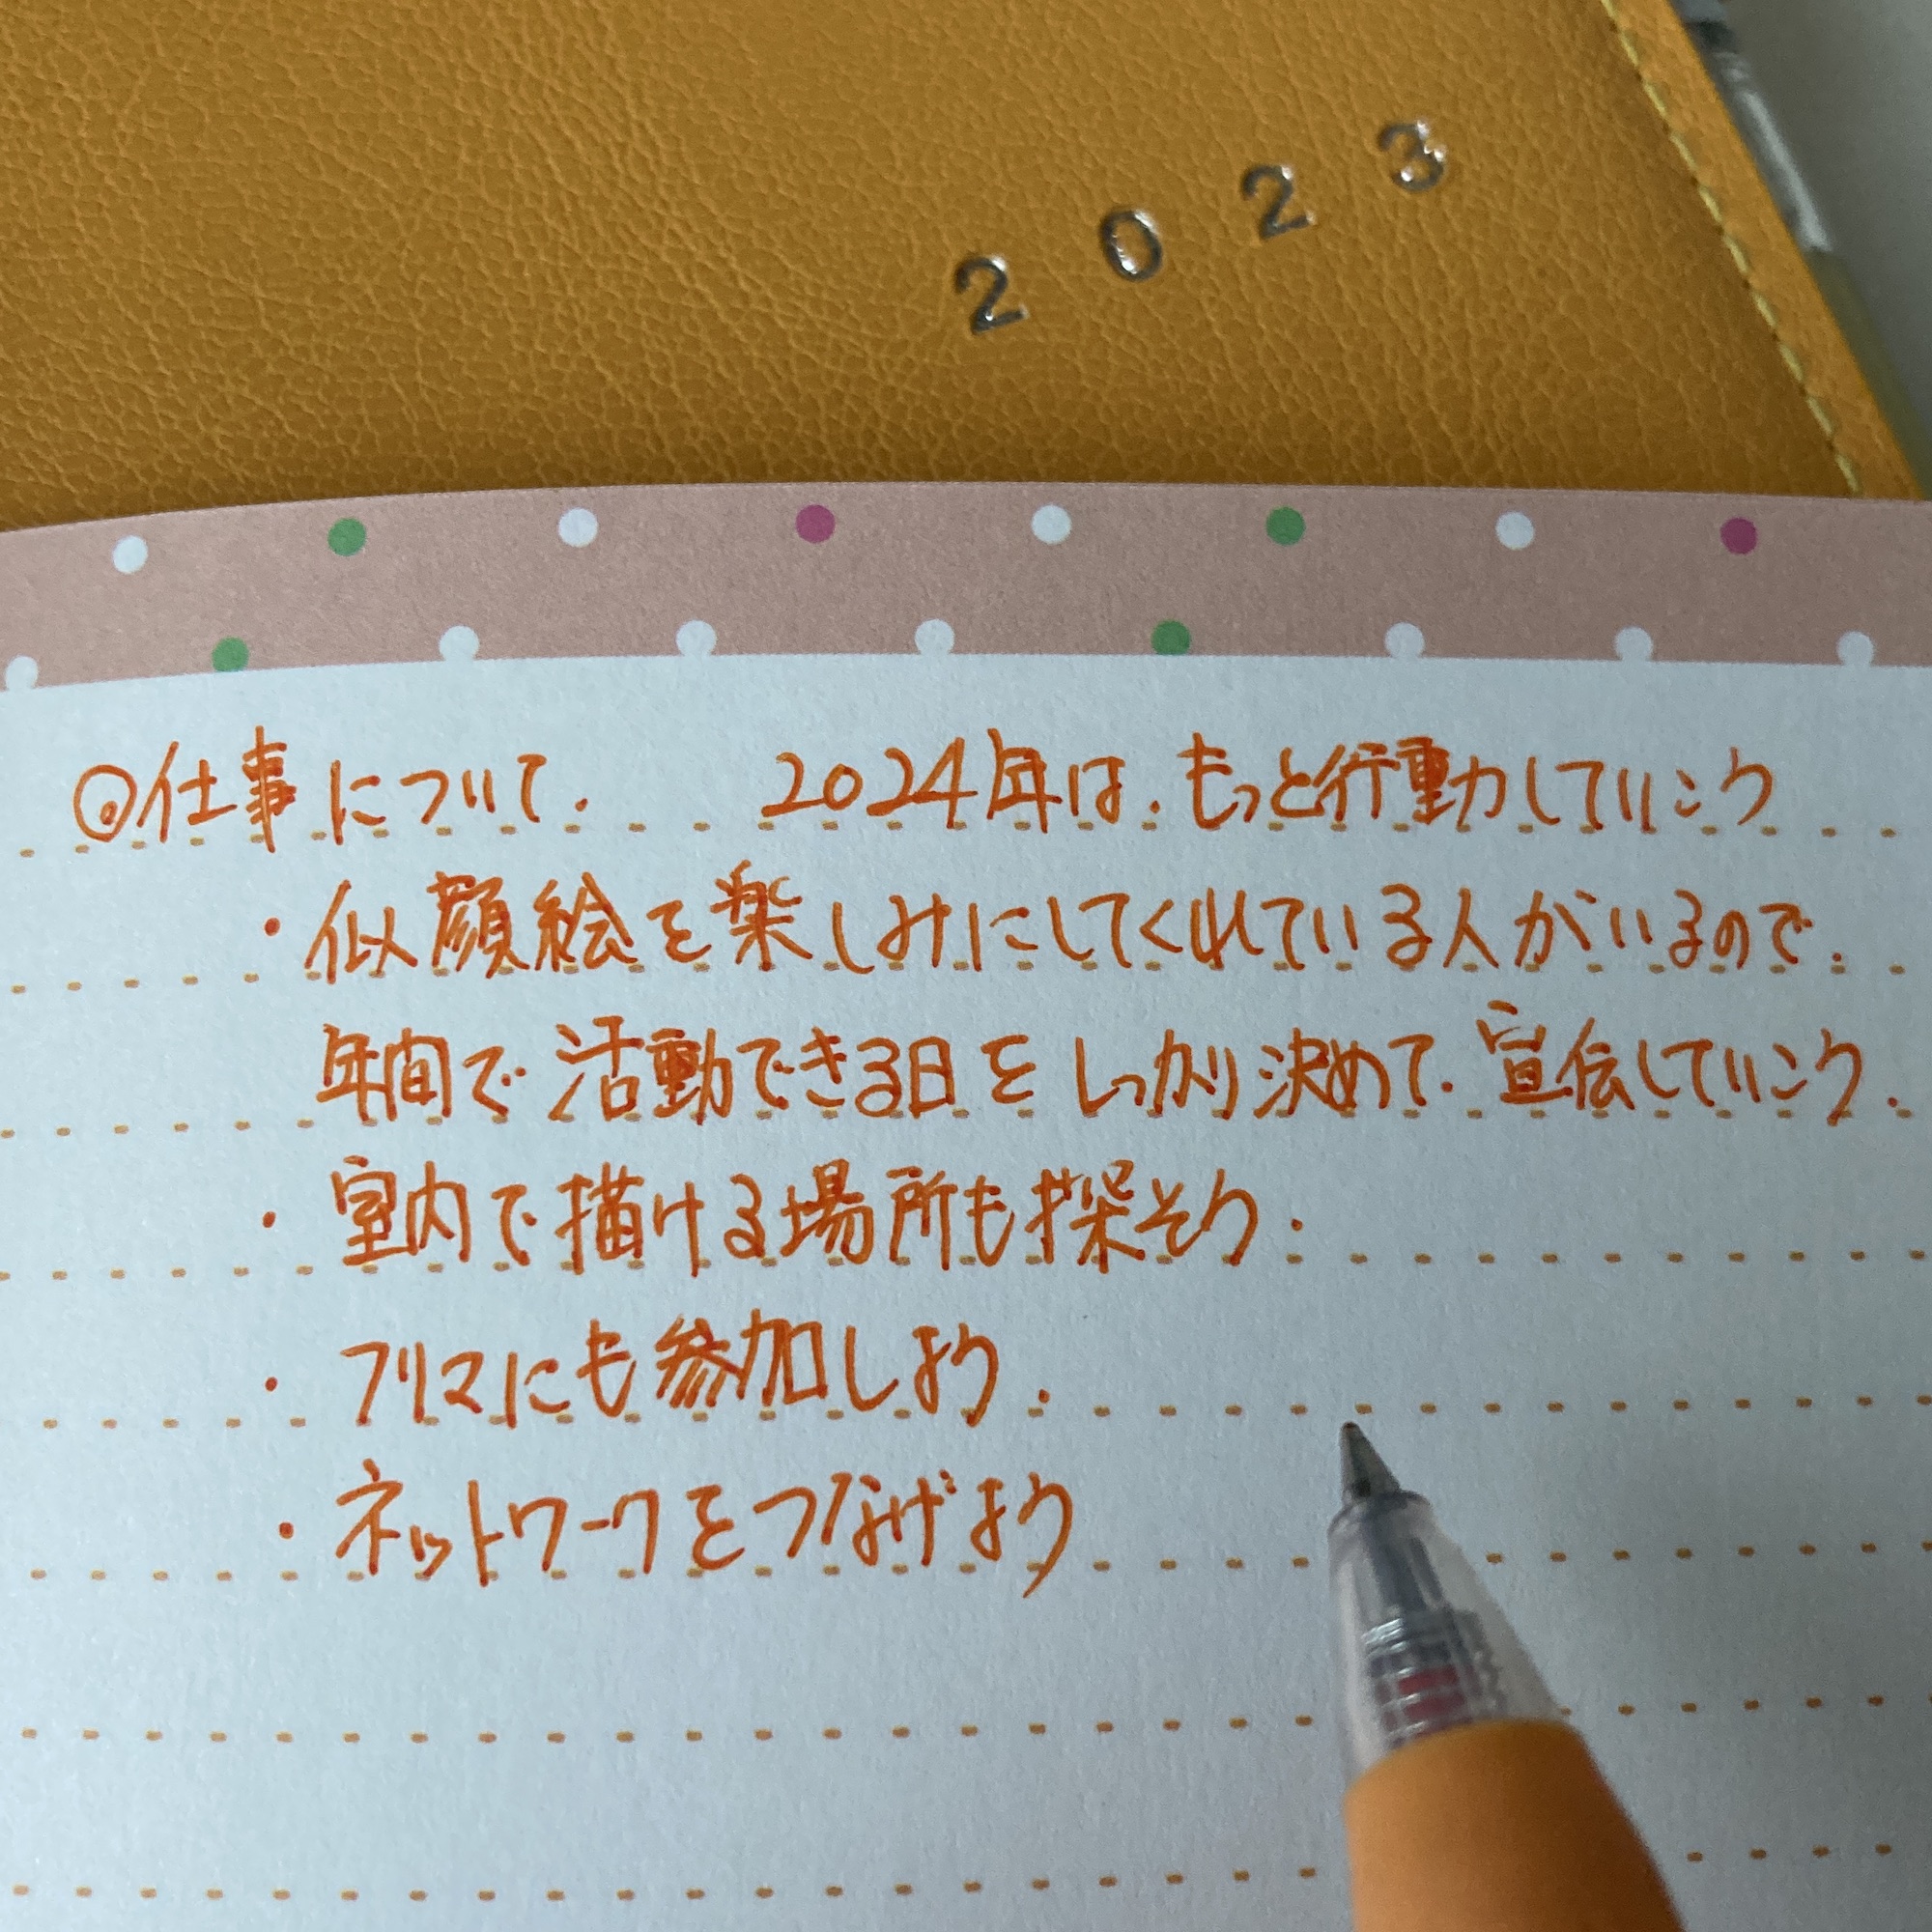 2023
◎仕事について. 2024年は.もっと行動していこう
・似顔絵を楽しみにしてくれている人がいるので.
年間で活動できる日をしっかり決めて.宣伝していこう.
・室内で描ける場所も探そう.
・フリマにも参加しよう.
・ネットワークをつなげよう